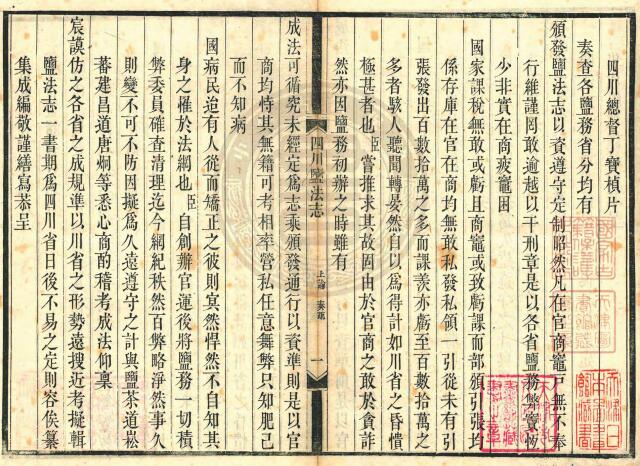 四川總督丁寶楨片
奏查各鹽務省分均有
頒發鹽法志以資遵守定制昭然凡在官商竈戶無不奉
行維謹罔敢逾越以干刑章是以各省鹽務弊竇恆
少非實在商疲竈困
國家課稅無敢或虧且商竈或虧課而部頒引張均
係存庫在官在商均無敢私發私領一引從未有引
張發出百數拾萬之多而課羨亦虧至百數拾萬之
多者駭人聽聞轉晏然自以爲得計如川省之昏憒
極甚者也臣嘗推求其故固由於官商之敢於貪詐
然亦因鹽務初辦之時雖有
四川鹽法志
上諭 奏疏
一
成法可循究未經定爲志乘頒發通行以資準則是以官
商均恃其無籍可考相率營私任意舞弊只知肥己
而不知病
國病民迨有人從而矯正之彼則冥然悍然不自知其
身之罹於法網也臣自創辦官運後將鹽務一切積
弊委員確查清理迄今綱紀秩然百弊略淨然事久
則變不可不防因擬爲久遠遵守之計與鹽茶道崧
蕃建昌道唐炯等悉心商酌稽考成法仰稟
宸謨仿之各省之成規準以川省之形勢遠搜近考擬輯
鹽法志一書期爲四川省日後不易之定則容俟纂
集成編敬謹繕寫恭呈